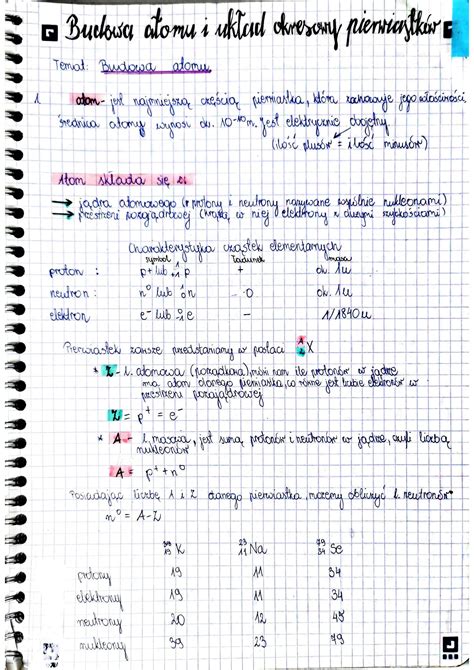 Budowa atomu i układ okresowy pierwiastków
Temat: Budowa atomu.
1. atom - jest najmniejszą częścią pierwiastka, która zachowuje jego właściwości
średnica atomu wynosi ok. 10⁻¹⁰m. Jest elektrycznie obojętny
(ilość plusów = ilość minusów)
Atom składa się z:
→ jądra atomowego (protony i neutrony nazywane wspólnie nukleonami)
→ przestrzeni pozajądrowej (krążą w niej elektrony z dużymi szybkościami)
Charakterystyka cząstek elementarnych
symbol ładunek masa
proton : p+ lub ¹₁p + ok. 1u
neutron : n⁰ lub ¹₀n 0 ok. 1u
elektron e⁻ lub ⁰₋₁e - 1/1840u
Pierwiastek zawsze przedstawiamy w postaci ᴬ_Z X
* Z - l. atomowa (porządkowa), mówi nam ile protonów w jądrze
ma atom danego pierwiastka, co równe jest liczbie elektronów w
przestrzeni pozajądrowej
Z = p⁺ = e⁻
* A - l. masowa, jest sumą protonów i neutronów w jądrze, czyli liczbą
nukleonów
A = p⁺ + n⁰
Posiadając liczbę A i Z danego pierwiastka, możemy obliczyć l. neutronów
n⁰ = A-Z
³⁹₁₉K ²³₁₁Na ⁷⁹₃₄Se
protony 19 11 34
elektrony 19 11 34
neutrony 20 12 45
nukleony 39 23 79